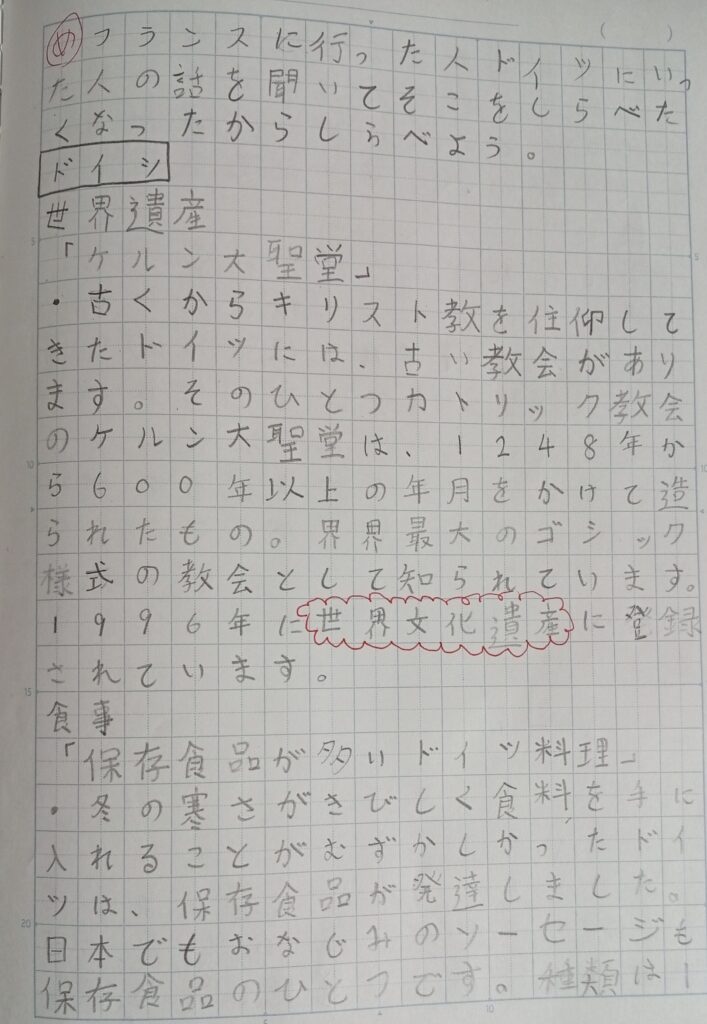 め フランスに行った人ドイツにいっ
た人の話を聞いてそこをしらべた
くなったからしらべよう。
ドイツ
世界遺産
「ケルン大聖堂」
・古くからキリスト教を住仰して
きたドイツには、古い教会があり
ます。そのひとつカトリック教会
のケルン大聖堂は、1248年か
ら600年以上の年月をかけて造
られたもの。界界最大のゴシック
様式の教会として知られています。
1996年に世界文化遺産に登録
されています。
食事
「保存食品が多いドイツ料理」
・冬の寒さがきびしく食料を手に
入れることがむずかしかったドイ
ツは、保存食品が発達しました。
日本でもおなじみのソーセージも
保存食品のひとつです。種類は1